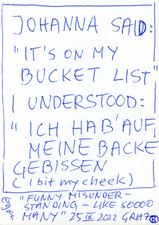 JOHANNA SAID:
"IT'S ON MY
BUCKET LIST"
I UNDERSTOOD:
"ICH HAB' AUF
MEINE BACKE
GEBISSEN
(I bit my cheek)
"FUNNY MISUNDER-
STANDING - LIKE SOOOO
MANY" 25 IX 2022 GRAZ